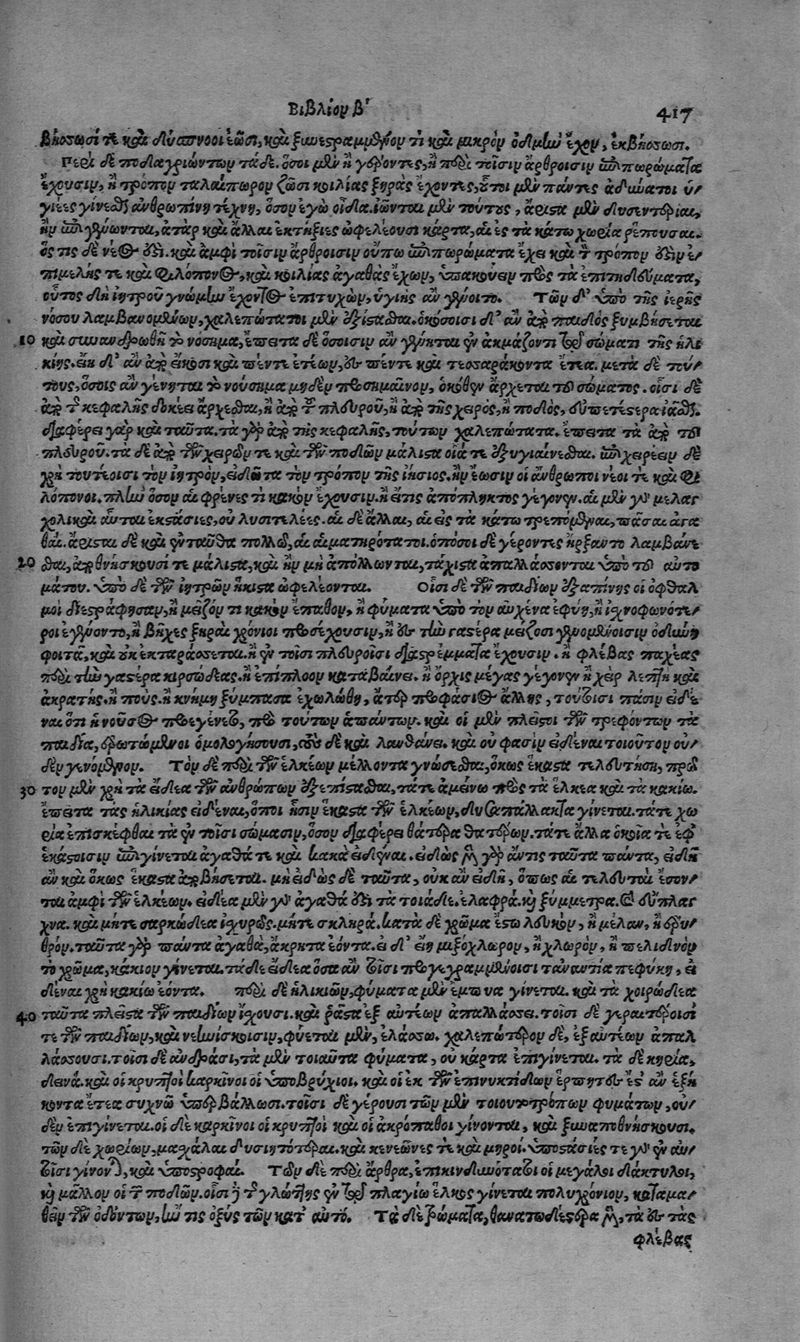 Βιβλίον β'
417
βήσσωσί τε καὶ δύσπνοοι ἔωσι, καὶ ξυνεστραμμένον τι καὶ μικρὸν ὀδμὴν ἔχον, ἐκβήσσωσι.
Περὶ δὲ ποδαγριώντων τάδε. ὅσοι μὲν ἢ γέροντες, ἢ περὶ τοῖσιν ἄρθροισιν ἐπιπωρώματα
ἔχουσιν, ἢ τρόπον ταλαίπωρον ζῶσι κοιλίας ξηρὰς ἔχοντες, οὗτοι μὲν πάντες ἀδύνατοι ὑ/
γιέες γίνεσθαι ἀνθρωπίνῃ τέχνῃ, ὅσον ἐγὼ οἶδα. ἰῶνται μὲν τούτους, ἄριστα μὲν δυσεντερίαι,
ἢν ἐπιγένωνται, ἀτὰρ καὶ ἄλλαι ἐκτήξιες ὠφελέουσι κάρτα, αἱ ἐς τὰ κάτω χωρία ῥέπουσαι.
ὅς τις δὲ νέος ἐστὶ. καὶ ἀμφὶ τοῖσιν ἄρθροισιν οὔπω ἐπιπωρώματα ἔχει καὶ τὸν τρόπον ἐστὶν ἐ/
πιμελής τε καὶ φιλόπονος, καὶ κοιλίας ἀγαθὰς ἔχων, ὑπακούειν πρὸς τὰ ἐπιτηδεύματα,
οὗτος δὴ ἰητροῦ γνώμην ἔχοντος ἐπιτυχὼν, ὑγιὴς ἂν γένοιτο. Τῶν δ' ὑπὸ τῆς ἱερῆς
νόσου λαμβανομένων, χαλεπώτατοι μὲν ἐξίστασθαι. ὁκόσοισι δ' ἂν ἀπὸ παιδὸς ξυμβήσεται
10 καὶ συνανδρωθῇ τὸ νόσημα, ἔπειτα δὲ ὅσοισιν ἂν γένηται ἐν ἀκμάζοντι τῷ σώματι τῆς ἡλι
κίης. εἴη δ' ἂν ἀπὸ εἴκοσι καὶ πέντε ἐτέων, ἐς πέντε καὶ τεσσαράκοντα ἔτεα. μετὰ δὲ τού/
τους, ὅσοις ἂν γένηται τὸ νούσημα μηδὲν προσημαῖνον, ὁκόθεν ἄρχεται τοῦ σώματος. οἷσι δὲ
ἀπὸ τῆς κεφαλῆς δοκέει ἄρχεσθαι, ἢ ἀπὸ τοῦ πλευροῦ, ἢ ἀπὸ τῆς χειρὸς, ἢ ποδὸς, εὐπετέστερα ἰᾶσθαι.
διαφέρει γὰρ καὶ ταῦτα. τὰ γὰρ ἀπὸ τῆς κεφαλῆς, τούτων χαλεπώτατα. ἔπειτα τὰ ἀπὸ τοῦ
πλευροῦ. τὰ δὲ ἀπὸ τῶν χειρῶν τε καὶ τῶν ποδῶν μάλιστα οἷά τε ἐξυγιαίνεσθαι. ἐπιχειρέειν δὲ
χρὴ τουτέοισι τὸν ἰητρὸν, εἰδότα τὸν τρόπον τῆς ἰήσιος. ἢν ἔωσιν οἱ ἄνθρωποι νέοι τε καὶ φι
λόπονοι. πλὴν ὅσον αἱ φρένες τι κακὸν ἔχουσιν. ἢ εἴ τις ἀπόπληκτος γέγονεν. αἱ μὲν γὰρ μελαγ
χολικαὶ αὗται ἐκστάσιες, οὐ λυσιτελέες. αἱ δὲ ἄλλαι, αἱ εἰς τὰ κάτω τρεπόμεναι, πᾶσαι ἀγα
θαί. ἄρισται δὲ καὶ ἐνταῦθα πολλῷ, αἱ αἱματηρόταται. ὁπόσοι δὲ γέροντες ἤρξαντο λαμβάνε
20 σθαι, ἀποθνήσκουσί τε μάλιστα, καὶ ἢν μὴ ἀπόλλωνται, τάχιστα ἀπαλλάσσονται ὑπὸ τοῦ αὐτο
μάτου. ὑπὸ δὲ τῶν ἰητρῶν ἥκιστα ὠφελέονται. Οἷσι δὲ τῶν παιδίων ἐξαπίνης οἱ ὀφθαλ
μοὶ διεστράφησαν, ἢ μεῖζόν τι κακὸν ἔπαθον, ἢ φύματα ὑπὸ τὸν αὐχένα ἐφύη, ἢ ἰσχνοφωνότε/
ροι ἐγένοντο, ἢ βῆχες ξηραὶ χρόνιοι προσέχουσιν, ἢ ἐς τὴν γαστέρα μείζοσι γενομένοισιν ὀδύνη
φοιτᾷ, καὶ οὐκ ἐκταράσσεται. ἢ ἐν τοῖσι πλευροῖσι διαστρέμματα ἔχουσιν. ἢ φλέβας παχέας
περὶ τὴν γαστέρα κιρσώδεας. ἢ ἐπίπλοον καταβαίνει. ἢ ὄρχις μέγας γέγονεν ἢ χεὶρ λεπτὴ καὶ
ἀκρατής. ἢ πούς. ἢ κνήμη ξύμπασα ἐχωλώθη, ἄτερ προφάσιος ἄλλης, τούτοισι πᾶσιν εἰδέ
ναι ὅτι ἡ νοῦσος προεγένετο, πρὸ τούτων ἁπάντων. καὶ οἱ μὲν πλεῖστοι τῶν τρεφόντων τὰ
παιδία, ἐρωτώμενοι ὁμολογήσουσι, τοὺς δὲ καὶ λανθάνει. καὶ οὔ φασιν εἰδέναι τοιοῦτον οὐ/
δὲν γενόμενον. Τὸν δὲ περὶ ἑλκέων μέλλοντα γνώσεσθαι, ὅκως ἕκαστα τελευτήσῃ, πρῶ
30 τον μὲν χρὴ τὰ εἴδεα τῶν ἀνθρώπων ἐξεπίστασθαι, τά τε ἀμείνω πρὸς τὰ ἕλκεα καὶ τὰ κακίω.
ἔπειτα τὰς ἡλικίας εἰδέναι, ὁποίῃσιν ἕκαστα τῶν ἑλκέων, δυσαπάλλακτα γίνεται. τά τε χω
ρία ἐπισκέφθαι τὰ ἐν τοῖσι σώμασιν, ὅσον διαφέρει θάτερα θατέρων. τά τε ἄλλα ὁκοῖα τε ἐφ'
ἑκάστοισιν ἐπιγίνεται ἀγαθά τε καὶ κακὰ εἰδέναι. εἰδὼς μὲν γὰρ ἄν τις ταῦτα πάντα, εἰδείη
ἂν καὶ ὅκως ἕκαστα ἀποβήσεται. μὴ εἰδὼς δὲ ταῦτα, οὐκ ἂν εἰδείη, ὅπως αἱ τελευταὶ ἔσον/
ται ἀμφὶ τῶν ἑλκέων. εἴδεα μὲν γὰρ ἀγαθά ἐστι τὰ τοιάδε. ἐλαφρὰ. καὶ ξύμμετρα. καὶ εὔσπλαγ
χνα. καὶ μήτε σαρκώδεα ἰσχυρῶς. μήτε σκληρά. κατὰ δὲ χρῶμα ἔστω λευκὸν, ἢ μέλαν, ἢ ἐρυ/
θρόν. ταῦτα γὰρ πάντα ἀγαθὰ, ἄκρητα ἐόντα. εἰ δ' εἴη μιξόχλωρον, ἢ χλωρὸν, ἢ πελιδνὸν
τὸ χρῶμα, κάκιον γίνεται. τὰ δὲ εἴδεα ὅσα ἂν τοῖσι προγεγραμμένοισι τἀναντία πεφύκῃ, εἰ
δέναι χρὴ κακίω ἐόντα. περὶ δὲ ἡλικιῶν, φύματα μὲν ἔμπυα γίνεται. καὶ τὰ χοιρώδεα
40 ταῦτα πλεῖστα τῶν παιδίων ἴσχουσι. καὶ ῥᾷστα ἐξ αὐτέων ἀπαλλάσσει. τοῖσι δὲ γεραιτέροισί
τε τῶν παιδίων, καὶ νεηνίσκοισιν, φύεται μὲν, ἐλάσσω. χαλεπώτερον δὲ, ἐξ αὐτέων ἀπαλ
λάσσουσι. τοῖσι δὲ ἀνδράσι, τὰ μὲν τοιαῦτα φύματα, οὐ κάρτα ἐπιγίνεται. τὰ δὲ κηρία,
δεινά. καὶ οἱ κρυπτοὶ καρκῖνοι οἱ ὑποβρύχιοι. καὶ οἱ ἐκ τῶν ἐπινυκτίδων ἕρπητες ἔς τ' ἂν ἑξή
κοντα ἔτεα συχνῷ ὑπερβάλλωσι. τοῖσι δὲ γέρουσι τῶν μὲν τοιουτοτρόπων φυμάτων, οὐ/
δὲν ἐπιγίνεται. οἱ δὲ καρκῖνοι οἱ κρυπτοὶ καὶ οἱ ἀκρόπαθοι γίνονται, καὶ ξυναποθνήσκουσι.
τῶν δὲ χωρίων, μασχάλαι δυσιητότεραι. καὶ κενεῶνες τε καὶ μηροί. ὑποστάσιές τε γὰρ ἐν αὐ/
τοῖσι γίνονται, καὶ ὑποστροφαί. Τῶν δὲ περὶ ἄρθρα, ἐπικινδυνότατοι οἱ μεγάλοι δάκτυλοι,
καὶ μᾶλλον οἱ τῶν ποδῶν. οἷσι δὲ τῆς γλώττης ἐν τῷ πλαγίῳ ἕλκος γίνεται πολυχρόνιον, καταμα/
θεῖν τῶν ὀδόντων, ἤν τις ὀξὺς τῶν κατ' αὐτό. Τὰ δὲ τρώματα, θανατωδέστερα μὲν, τὰ ἐς τὰς
φλέβας